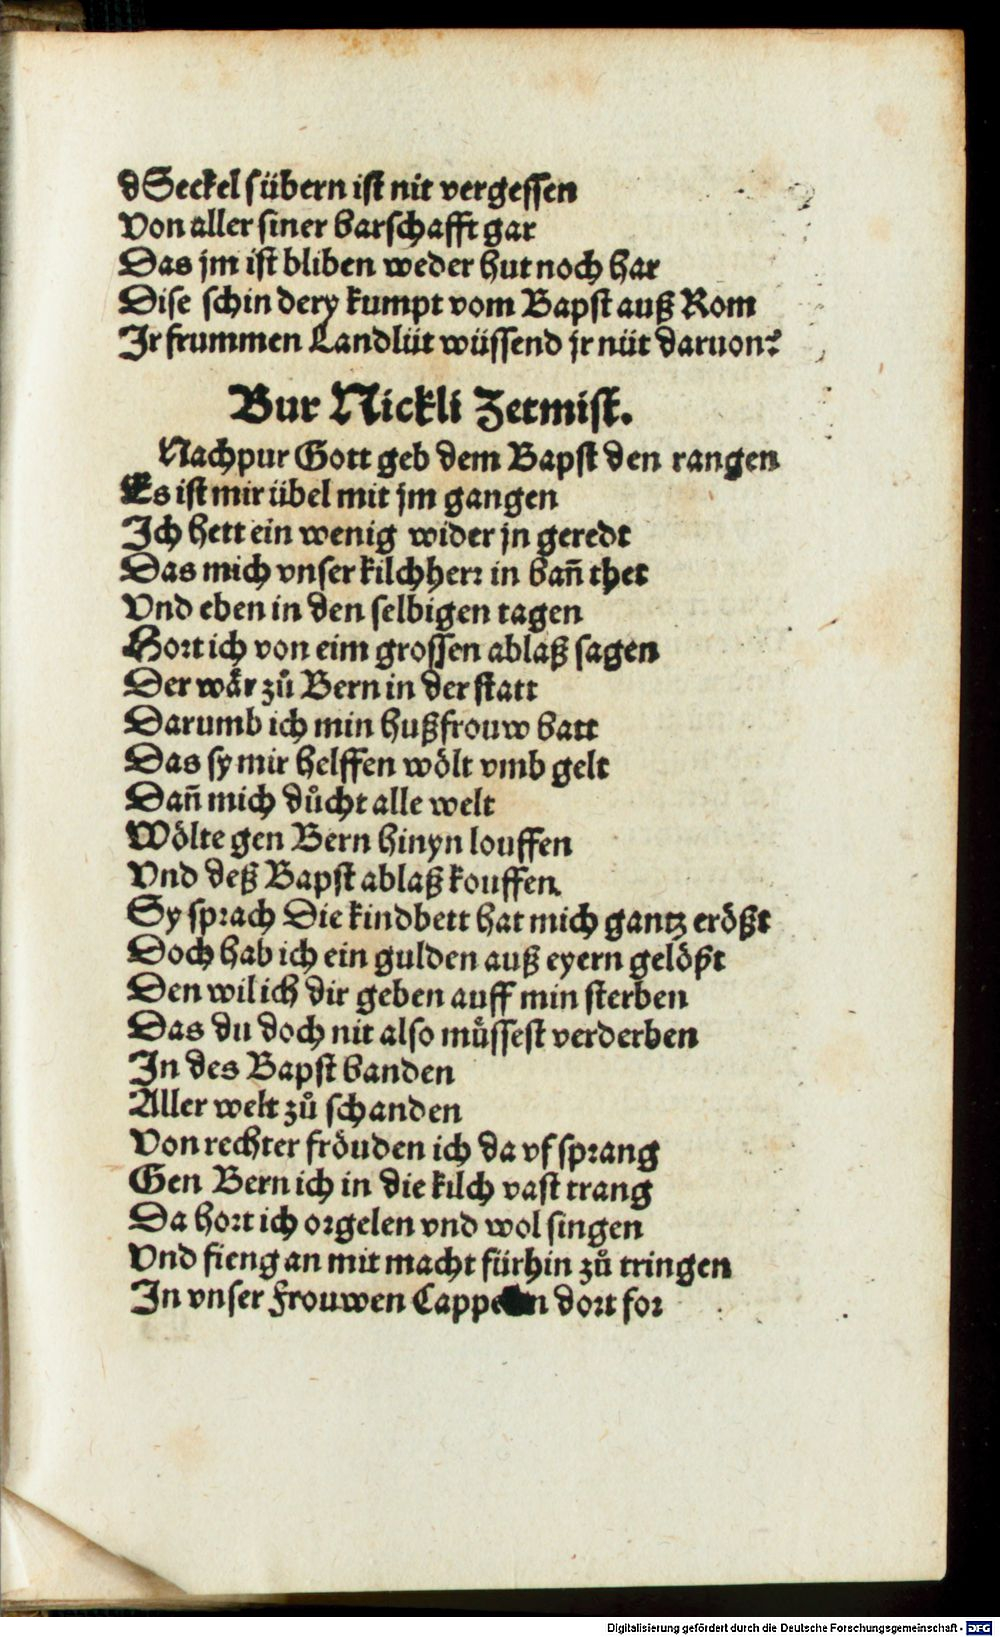 d Seckel sübern ist nit vergessen
Von aller siner barschafft gar
Das jm ist bliben weder hut noch har
Dise schindery kumpt vom Bapst auß Rom
Jr frummen Landlüt wüssend jr nüt daruon?
Bur Nickli Zetmist.
Nachpur Gott geb dem Bapst den rangen
Es ist mir übel mit jm gangen
Ich hett ein wenig wider jn geredt
Das mich vnser kilchherr in bañ thet
Vnd eben in den selbigen tagen
Hort ich von eim grossen ablaß sagen
Der wår zů Bern in der statt
Darumb ich min hußfrouw batt
Das sy mir helffen wölt vmb gelt
Dañ mich důcht alle welt
Wölte gen Bern hinyn louffen
Vnd deß Bapst ablaß kouffen.
Sy sprach Die kindbett hat mich gantz erößt
Doch hab ich ein gulden auß eyern gelößt
Den wil ich dir geben auff min sterben
Das du doch nit also můssest verderben
In des Bapst banden
Aller welt zů schanden
Von rechter fröuden ich da vf sprang
Gen Bern ich in die kilch vast trang
Da hort ich orgelen vnd wol singen
Vnd fieng an mit macht fürhin zů tringen
In vnser Frouwen dort for
Digitalisierung gefördert durch die Deutsche Forschungsgemeinschaft - DFG